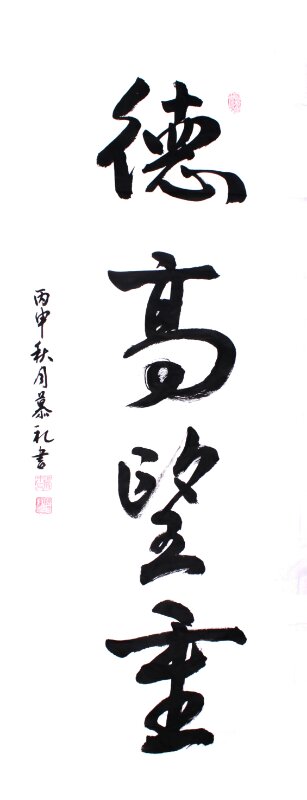 德高望重
丙申秋月慕礼書